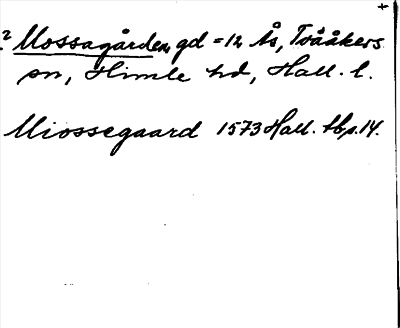 +
? Mossagården, gd = 1/2 Ås, Tvååkers
sn, Himle hd, Hall. l.
Miossegaard 1573 Hall. tb, s. 14.